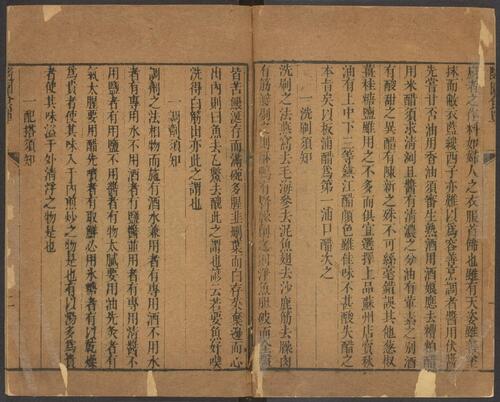 廚者之作料如婦人之衣服首飾也雖有天姿雖善塗
抹而敝衣藍縷西子亦難以爲容善烹調者醬用伏醬
先嘗甘否油用香油須審生熟酒用酒孃應去糟粕醋
用米醋須求清冽且醬有清濃之分油有葷素之別酒
有酸甜之異醋有陳新之殊不可絲毫錯誤其他葱椒
薑桂糖鹽雖用之不多而俱宜選擇上品蘇州店賣秋
油有上中下三等鎮江醋顏色雖佳味不甚酸失醋之
本旨矣以板浦醋爲第一浦口醋次之
一洗刷須知
洗刷之法燕窩去毛海參去泥魚翅去沙鹿筋去臊肉
有筋瓣剔之則酥鴨有腎臊削之則淨魚膽破而全盤
皆苦鰻涎存而滿碗多腥韭刪葉而白存菜棄邊而心
出内則曰魚去乙鱉去醜此之謂也諺云若要魚好喫
洗得白筋出亦此之謂也
一調劑須知
調劑之法相物而施有酒水兼用者有專用酒不用水
者有專用水不用酒者有鹽醬並用者有專用清醬不
用鹽者有用鹽不用醬者有物太膩要用油先炙者有
氣太腥要用醋先噴者有取鮮必用冰糖者有以乾燥
爲貴者使其味入于內煎炒之物是也有以湯多爲貴
者使其味溢于外清浮之物是也
一配搭須知